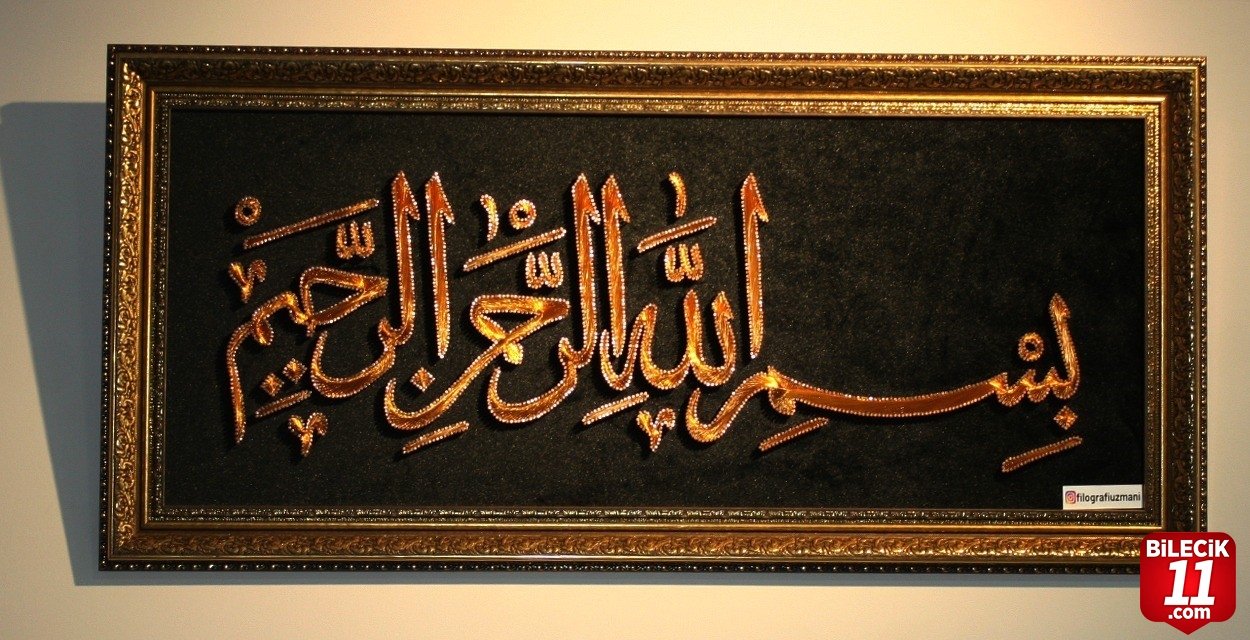 بِسْمِ اللَّهِ الرَّحْمٰنِ الرَّحِيمِ
filografiuzmani
BiLECiK
11
.com